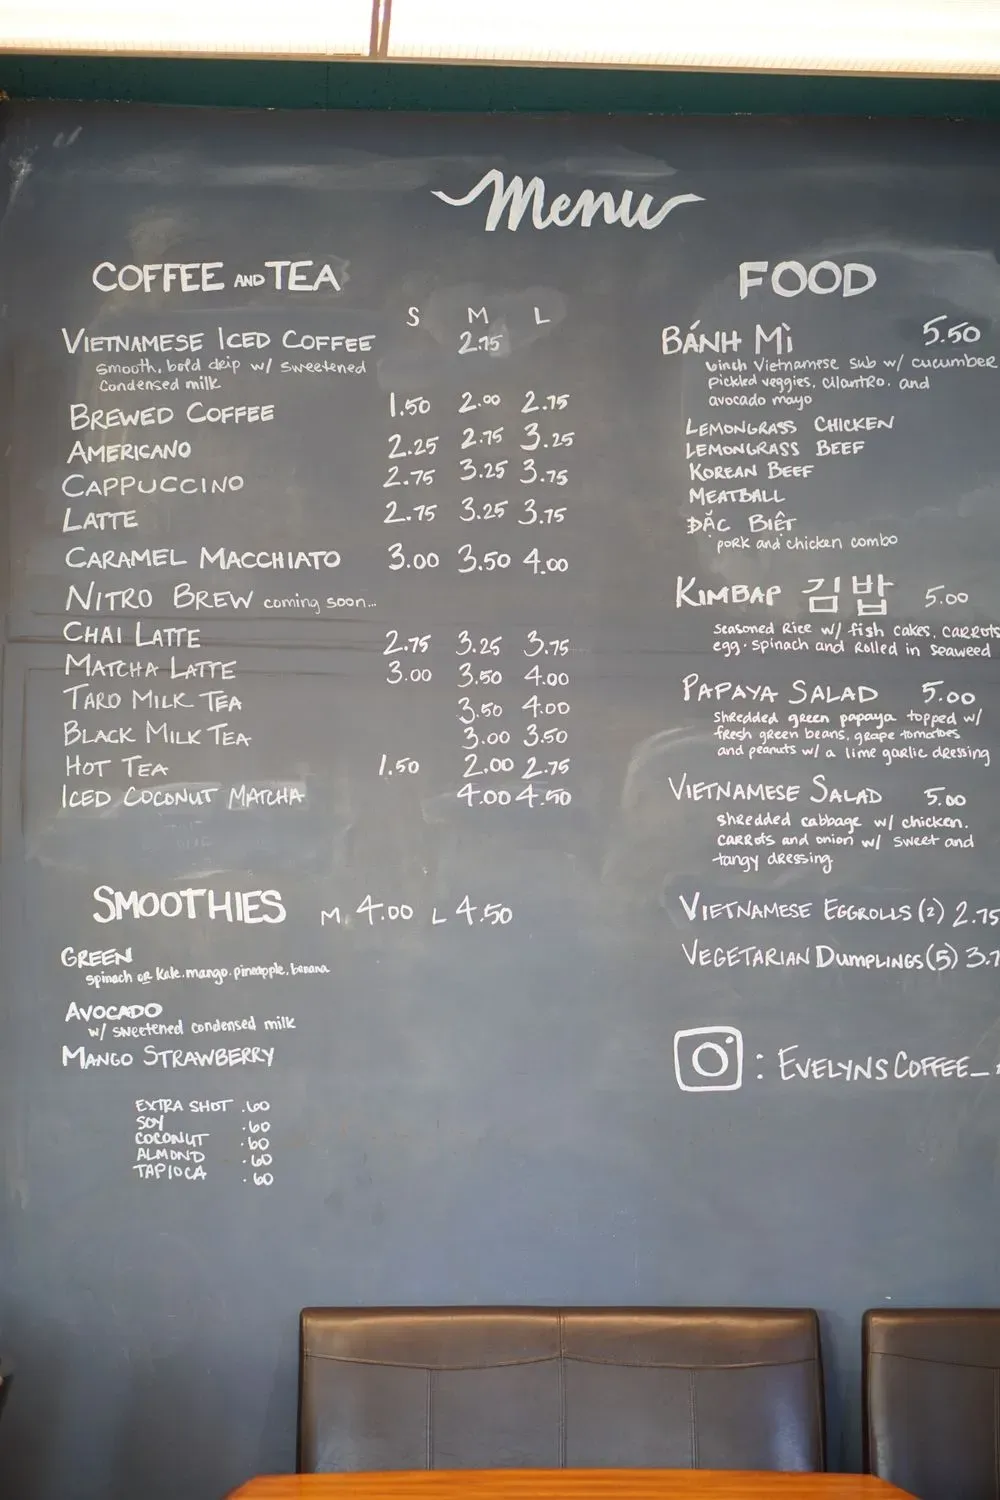 Menu
COFFEE AND TEA
S M L
VIETNAMESE ICED COFFEE 2.75
smooth, bold drip w/ sweetened
condensed milk
BREWED COFFEE 1.50 2.00 2.75
AMERICANO 2.25 2.75 3.25
CAPPUCCINO 2.75 3.25 3.75
LATTE 2.75 3.25 3.75
CARAMEL MACCHIATO 3.00 3.50 4.00
NITRO BREW coming soon...
CHAI LATTE 2.75 3.25 3.75
MATCHA LATTE 3.00 3.50 4.00
TARO MILK TEA 3.50 4.00
BLACK MILK TEA 3.00 3.50
HOT TEA 1.50 2.00 2.75
ICED COCONUT MATCHA 4.00 4.50
SMOOTHIES M 4.00 L 4.50
GREEN
spinach or kale, mango, pineapple, banana
AVOCADO
w/ sweetened condensed milk
MANGO STRAWBERRY
EXTRA SHOT .60
SOY .60
COCONUT .60
ALMOND .60
TAPIOCA .60
FOOD
BÁNH MÌ 5.50
Vietnamese sub w/ cucumber
pickled veggies, cilantro, and
avocado mayo
LEMONGRASS CHICKEN
LEMONGRASS BEEF
KOREAN BEEF
MEATBALL
ĐẶC BIỆT
pork and chicken combo
KIMBAP 김밥 5.00
seasoned rice w/ fish cakes, carrots
egg, spinach and rolled in seaweed
PAPAYA SALAD 5.00
shredded green papaya topped w/
fresh green beans, grape tomatoes
and peanuts w/ a lime garlic dressing
VIETNAMESE SALAD 5.00
shredded cabbage w/ chicken,
carrots and onion w/ sweet and
tangy dressing
VIETNAMESE EGGROLLS (2) 2.75
VEGETARIAN DUMPLINGS (5) 3.7
: EVELYNSCOFFEE_